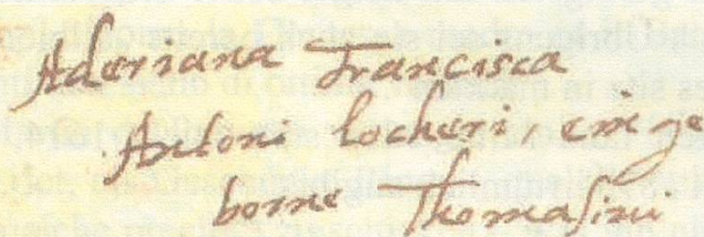 Aderiana Francisca
Antoni locheri, ein ge
borne Thomasini